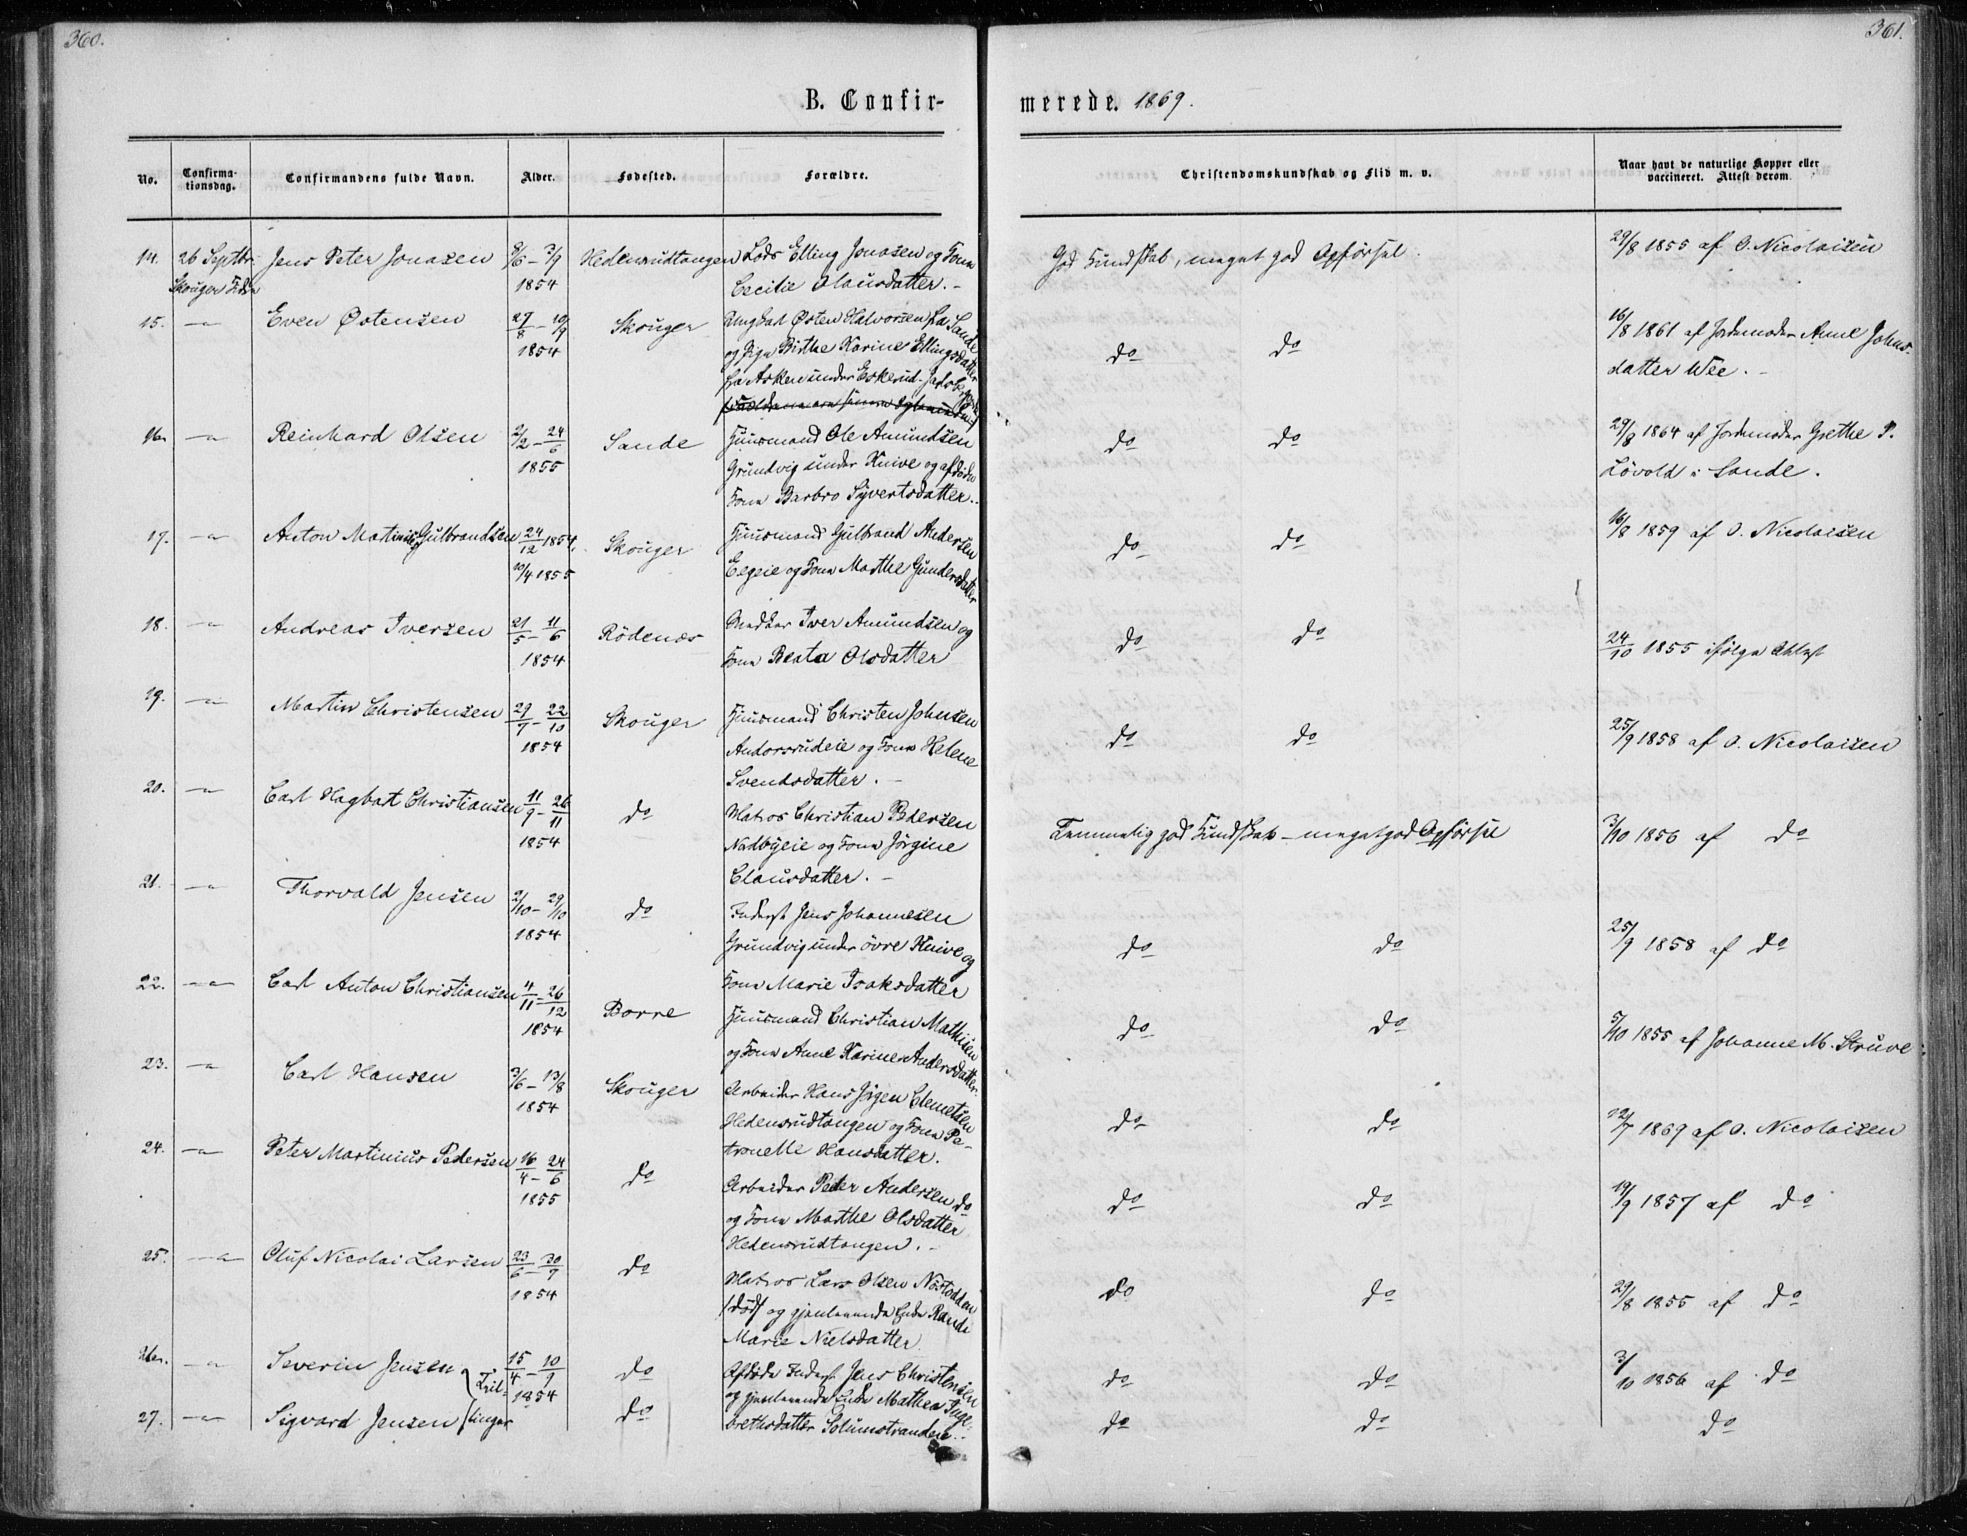 360.
361.
B. Confir-
merede. 1869.
No.
Confirma-
tionsdag.
Confirmandens fulde Navn.
Alder.
Fødested.
Forældre.
Christendomskundskab og Flid m. v.
Naar havt de naturlige Kopper eller
vaccineret. Attest derom.
14. 26 Septbr Jens Peter Jonasen 9/6 - 3/9 1854 Hedensrudtangen
Skouger
Lods Elling Jonasen og Kone
Cecilie Olausdatter. -
God Kundskab, meget god Opførsel.
29/8 1855 af O. Nicolaisen
15. -"- Even Østensen 27/8 - 10/9 1854 Skouger
Ungkarl Østen Halvorsen fra Sande
og Pige Birthe Karine Ellingsdatter
fra Asken under Eskerud
do do
16/8 1861 af Jordemoder Anne Johns-
datter Wee. -
16. -"- Reinhard Olsen 2/2 - 24/6 1855 Sande
Huusmand Ole Amundsen
Grundvig under Knive og afdøde
Kone Barbro Syvertsdatter.
do do
29/8 1864 af Jordemoder Grethe P.
Lövold i Sande.
17. -"- Anton Matinius Gulbrandsen 24/12 1854, 10/4 1855 Skouger
Huusmand Gulbrand Andersen
Eegeie og Kone Marthe Gundersdatter
do do
16/8 1859 af O. Nicolaisen
18. -"- Andreas Iversen 21/5 - 11/6 1854 Rödenæs
Iver Amundsen og
Kone Beata Olsdatter
do do
24/10 1855 ifølge Attest
19. -"- Martin Christensen 29/7 - 22/10 1854 Skouger
Huusmand Christen Johnsen
Andorsrudeie og Kone Helene
Svendsdatter. -
do do
25/9 1858 af O. Nicolaisen
20. -"- Carl Hagbart Christiansen 11/9 - 26/11 1854 do
Matros Christian Pedersen
Nødbyeie og Kone Jörgine
Clausdatter. -
Temmelig god Kundskab - meget god Opførsel
3/10 1856 af do
21. -"- Thorvald Jensen 2/10 - 29/10 1854 do
Inderst Jens Johannesen
Grundvig under övre Knive og
Kone Marie Isaksdatter
do do
25/9 1858 af do
22. -"- Carl Anton Christiansen 4/11 - 26/12 1854 Borre
Huusmand Christian Mathisen
og Kone Anne Karine Andersdatter
do do
5/10 1855 af Johanne M. Struve.
23. -"- Carl Hansen 3/6 - 13/8 1854 Skouger
Arbeider Hans Jörgen Clemetsen
Hedensrudtangen og Kone Pe-
tronelle Hansdatter.
do do
12/7 1869 af O. Nicolaisen
24. -"- Peter Martinius Pedersen 16/4 - 24/6 1855 do
Arbeider Peder Andersen do
og Kone Marthe Olsdatter
Hedensrudtangen. -
do do
19/9 1857 af do
25. -"- Oluf Nicolai Larsen 23/6 - 30/9 1854 do
Matros Lars Olsen Nöstodden
/død/ og gjenlevende Enke Rande
Marie Nielsdatter
do do
29/8 1855 af do
26. -"- Severin Jensen 15/4 - 10/9 1854 do
Afdöde Inderst Jens Christensen
og gjenlevende Enke Mathea Inge-
brethsdatter Solumstranden.
do do
3/10 1856 af do
27. -"- Sigvard Jensen Tvil-
linger do
do do
do